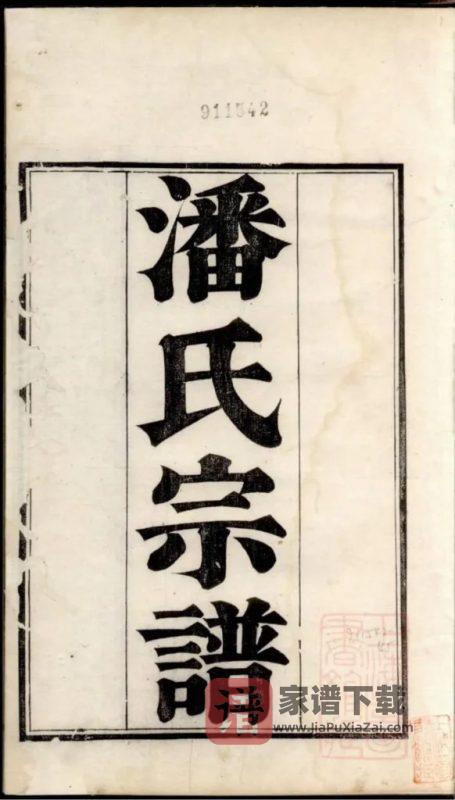 911342
潘氏宗譜
谱
家谱下载
www.JiaPuXiaZai.com